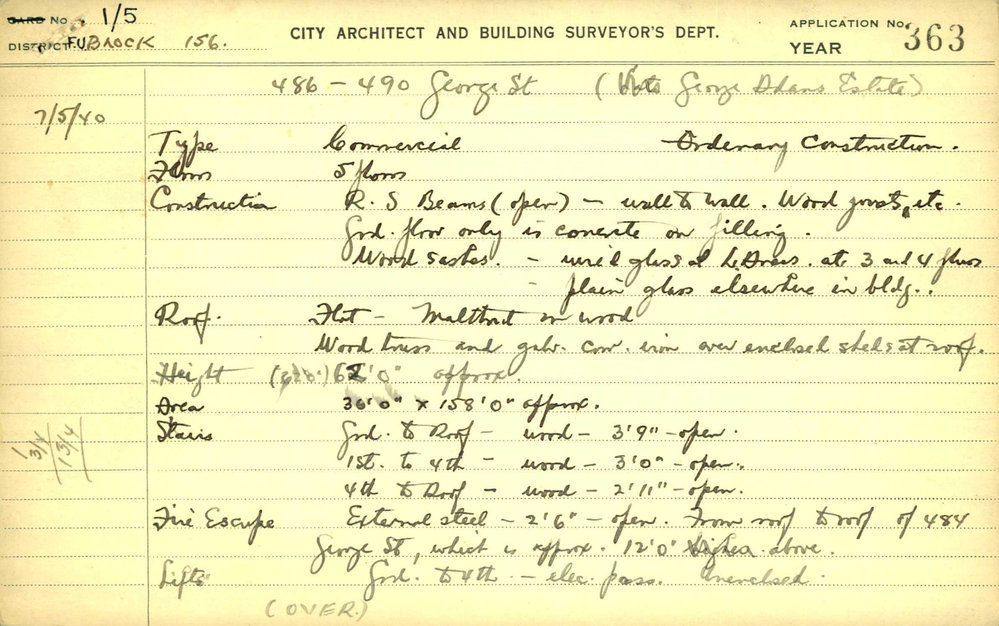 CARD No. 1/5
DISTRICT. FU BROCK 156.
CITY ARCHITECT AND BUILDING SURVEYOR'S DEPT.
APPLICATION No. 363
YEAR
486 - 490 George St ( George Adams Estate)
7/5/40
Type Commercial Ordinary Construction.
Floors 5 floors
Construction R. S Beams (open) - wall to wall. Wood joists, etc.
Grd. floor only is concrete on filling.
Wood sashes. - wire'd glass at L. Areas. at 3 and 4 floors
- plain glass elsewhere in bldg..
Roof. Flat - Malthoid on wood
Wood truss and galv. corr. iron over enclosed sheds at roof.
Height 62'0" approx.
Area 36'0" x 158'0" approx.
Stairs Grd. to Roof - wood - 3'9" - open.
1st. to 4th - wood - 3'0" - open.
4th to Roof - wood - 2'11" - open.
1 3/4 13/4
Fire Escape External steel - 2'6" - open. From roof to roof of 484
George St, which is approx. 12'0" above.
Lifts Grd. to 4th - elec. pass. Unenclsed.
(OVER.)